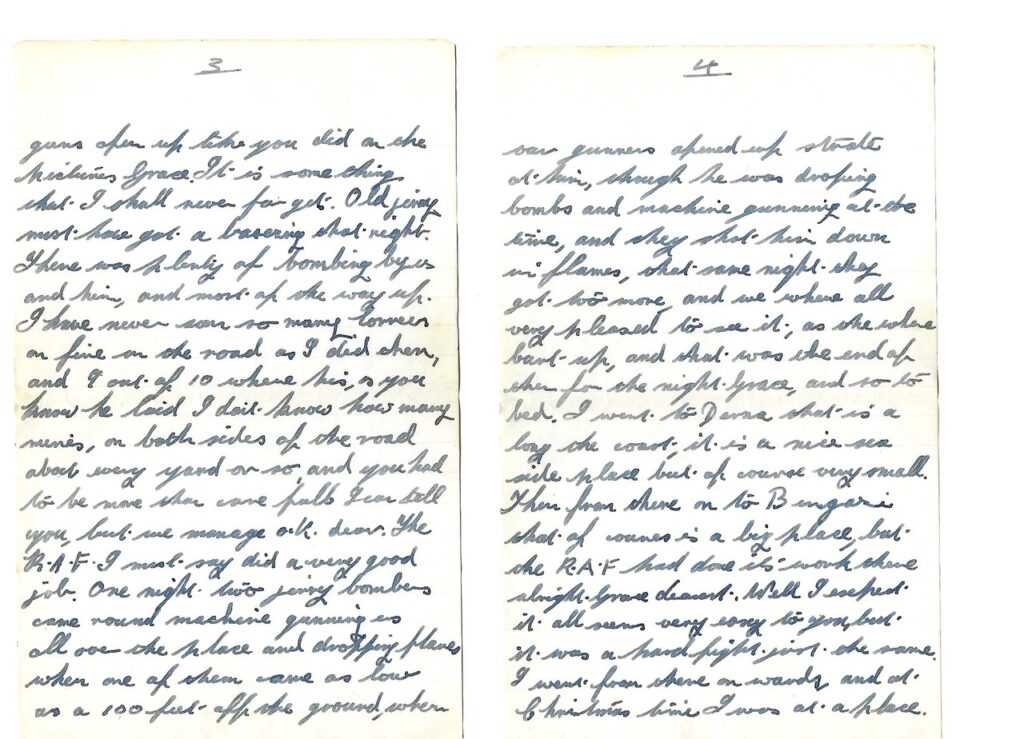 3
guns open up like you did on the
pictures Grace. It is some thing
that I shall never for get. Old jerry
must have got a bastering that night.
There was plenty of bombing by us
and him, and most of the way up.
I have never saw so many lorries
on fire on the road as I did then,
and 9 out of 10 where his, as you
know he laid I dont know how many
mines, on both sides of the road
about every yard or so, and you had
to be more than care full I can tell
you, but we manage o.k. dear. The
R.A.F. I must say did a very good
job. One night two jerry bombers
came round machine gunning us
all over the place and dropping flares
when one of them came as low
as a 100 feet off the ground, when
4
our gunners opened up strate
at him, though he was droping
bombs and machine gunning at the
time, and they shot him down
in flames, that same night they
got two more, and we where all
very pleased to see it, as the where
burt up, and that was the end of
them for the night Grace, and so to
bed. I went to Derna that is a
long the coast, it is a nice sea
side place but of course very small.
Then from there on to Bengazi
that of course is a big place, but
the R.A.F had done its work there
alright Grace dearest. Well I expect
it all seems very easy to you, but
it was a hard fight just the same.
I went from there on wards and at
Christmas time I was at a place.